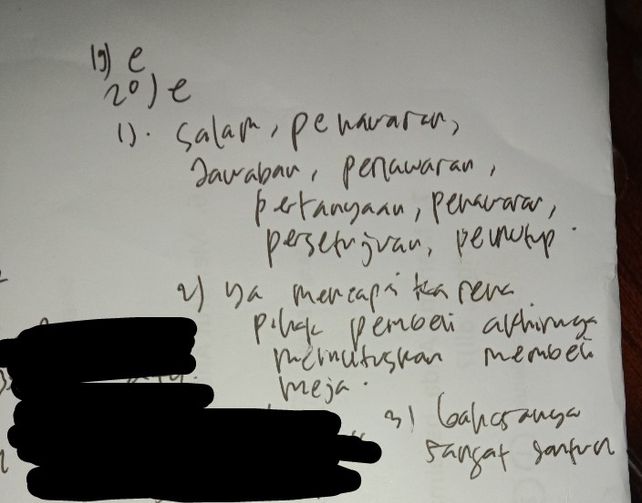 19) e
20) e
1). Salam, penawaran,
Jawaban, penawaran,
pertanyaan, penawaran,
persetujuan, penutup.
2) ya mencapai karena
pihak pembeli akhirnya
memutuskan membeli
meja.
3) bahasanya
sangat santun